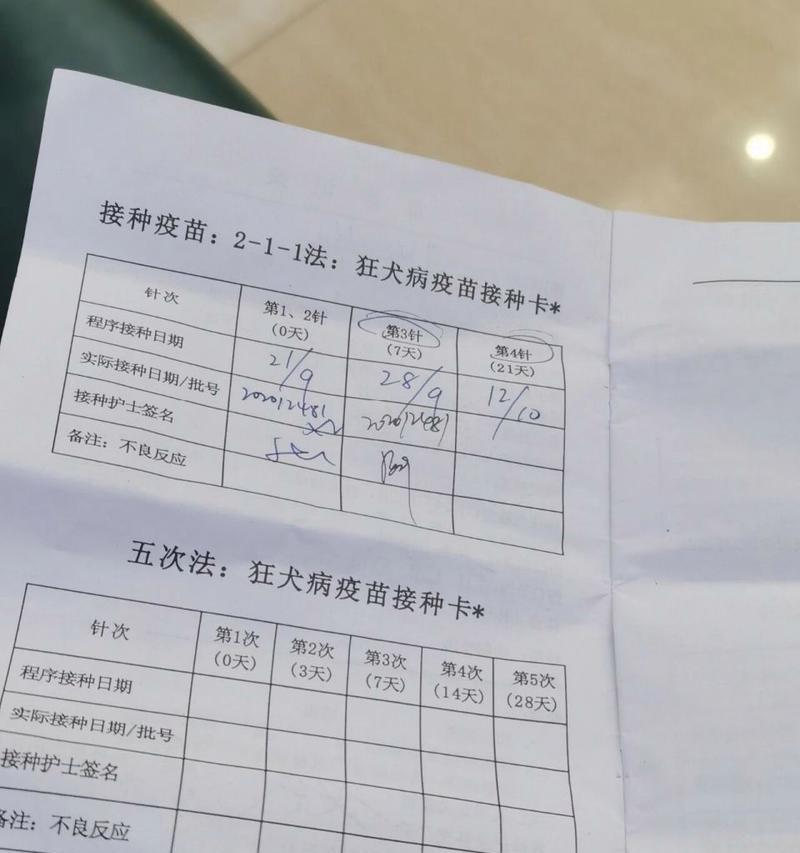 接种疫苗：2-1-1法：狂犬病疫苗接种卡*
针次 第1、2针 第3针 第4针
(0天) (7天) (21天)
程序接种日期 21/9 28/9 12/10
实际接种日期/批号 202012481 202012481
接种护士签名
备注：不良反应
五次法：狂犬病疫苗接种卡*
针次 第1次 第2次 第3次 第4次 第5次
(0天) (3天) (7天) (14天) (28天)
程序接种日期
实际接种日期/批号
接种护士签名
备注：不良反应